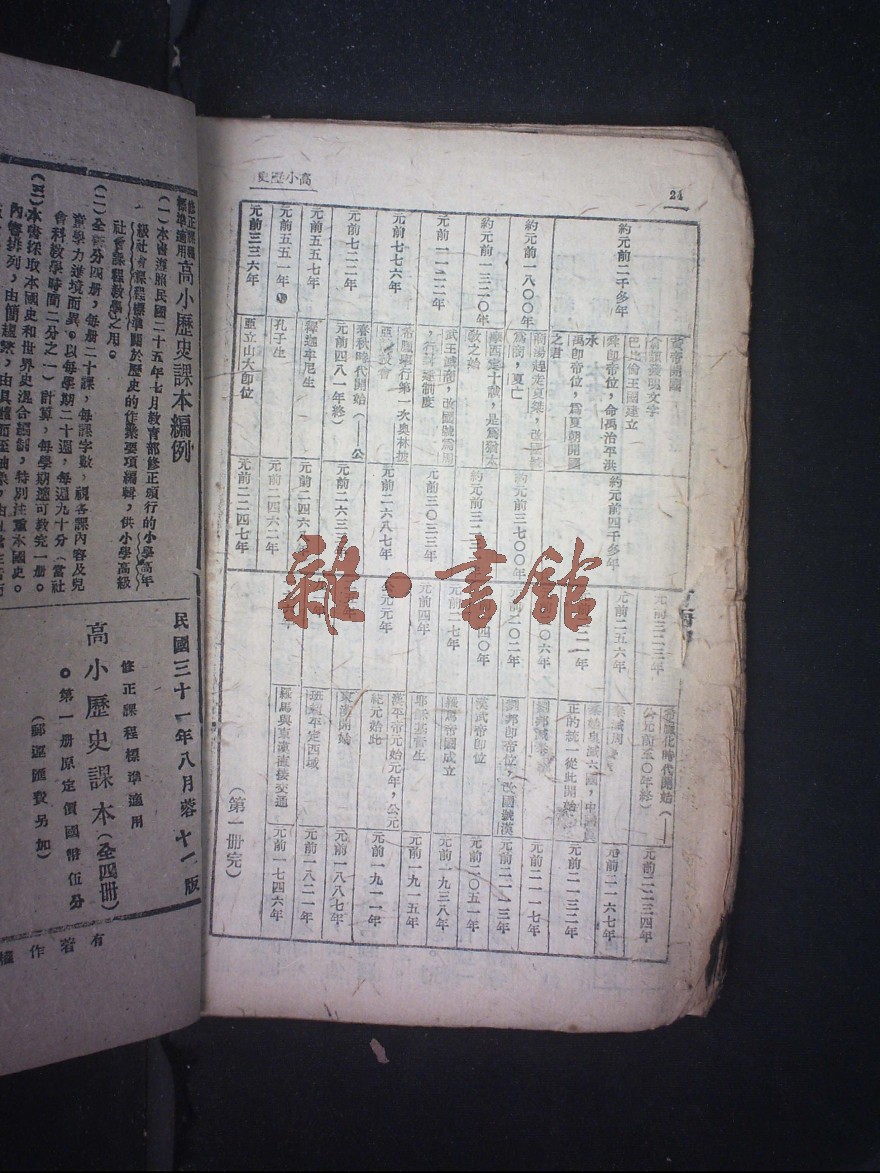 高小歷史
24
約元前二千多年
黃帝開國
倉頡發明文字
巴比倫王國建立
舜卽帝位,命禹治平洪水
禹卽帝位,爲夏朝開國之君
約元前四千多年
約元前一八〇〇年
商湯趕走夏桀,改國號爲商,夏亡
約元前三七〇〇年
約元前一三二〇年
摩西定十誡,是爲猶太教之始
元前一一二二年
武王滅商,改國號爲周,行封建制度
元前三〇三三年
元前七七六年
希臘舉行第一次奧林披亞競技會
元前二六八七年
元前七二二年
春秋時代開始(——公元前四八一年終)
元前二六三三年
元前五五七年
釋迦牟尼生
元前五五一年
孔子生
元前二四六二年
元前三三六年
亞立山大卽位
元前二二四七年
元前三二三年
希臘化時代開始(——公元前三〇年終)
元前二二三四年
元前二五六年
元前二一六七年
秦始皇滅六國,中國眞正的統一從此開始
元前二一三二年
元前二一一七年
元前二〇二年
劉邦卽帝位,改國號漢
元前二一一三年
漢武帝卽位
元前二〇五一年
元前二七年
羅馬帝國成立
元前一九三八年
元前四年
耶穌基督生
元前一九一五年
公元元年
漢平帝元始元年,公元紀元始此
元前一九一一年
東漢開始
元前一八八七年
班超平定西域
元前一八二一年
羅馬與東漢直接交通
元前一七四六年
(第一册完)
雜·書館
修正課程標準適用
高小歷史課本編例
(一)本書遵照民國二十五年七月敎育部修正頒行的小學高年級社會課程標準關於歷史的作業要項編輯,供小學高級社會課程敎學之用。
(二)全書分四册,每册二十課,每課字數,視各課內容及兒童學力遞境而異。以每學期二十週,每週九十分(當社會科敎學時間二分之一)計算,每學期適可敎完一册。
(三)本書採取本國史和世界史混合編制,特別注重本國史。
民國三十一年八月蓉十一版
修正課程標準適用
高小歷史課本(全四册)
。第一册原定價國幣伍分
(郵運匯費另加)
有著作權